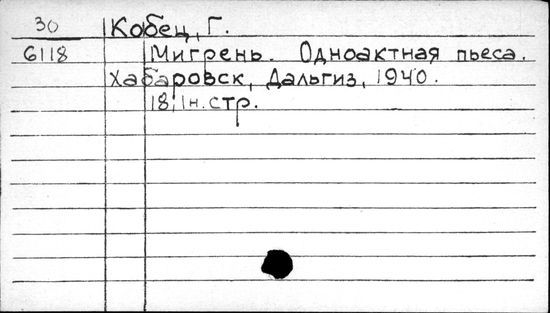 30 Кобец, Г.
6118 Мигрень. Одноактная пьеса.
Хабаровск, Дальгиз, 1940.
18,1н.стр.